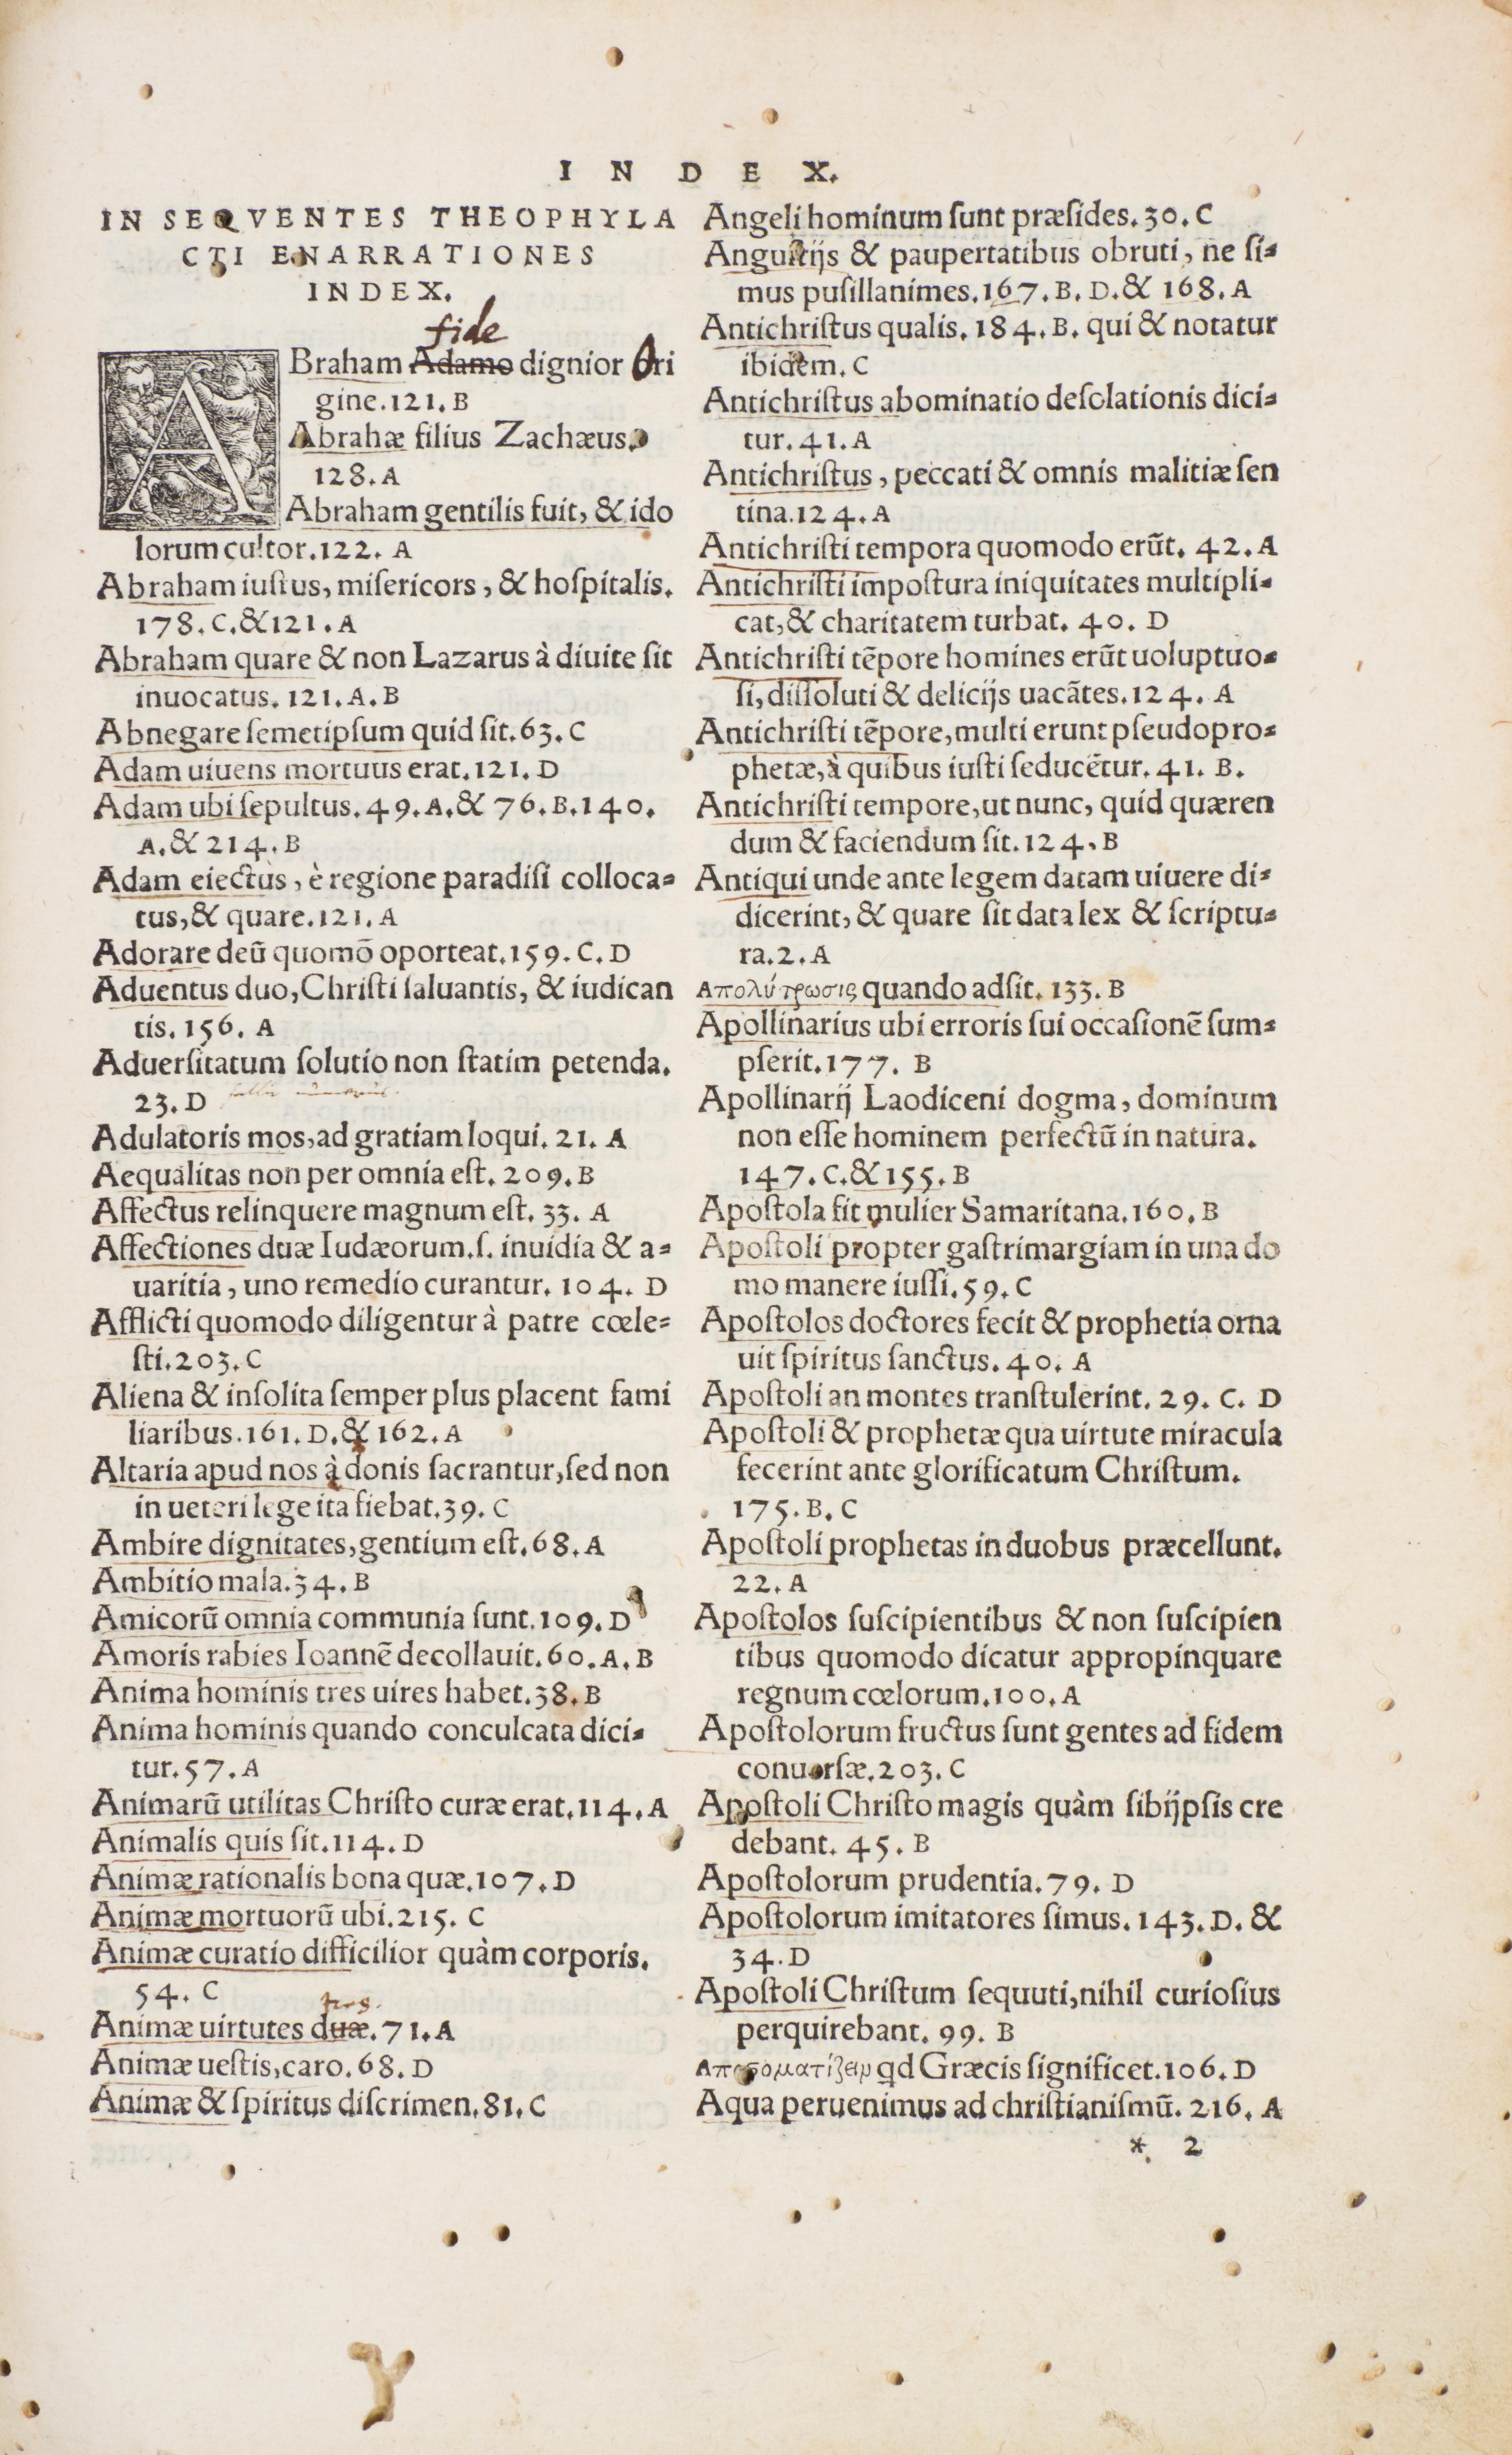 I N D E X.
IN SEQVENTES THEOPHYLA
CTI ENARRATIONES
INDEX.
fide
ABraham Adamo dignior Ori
gine.121.B
Abrahæ filius Zachæus.
128.A
Abraham gentilis fuit, & ido
lorum cultor.122. A
Abraham iustus, misericors, & hospitalis.
178.C.&121.A
Abraham quare & non Lazarus à diuite sit
inuocatus. 121.A.B
Abnegare semetipsum quid sit.63.C
Adam uiuens mortuus erat.121.D
Adam ubi sepultus.49.A.& 76.B.140.
A.& 214.B
Adam eiectus, è regione paradisi colloca=
tus,& quare.121.A
Adorare deū quomō oporteat.159.C.D
Aduentus duo,Christi saluantis, & iudican
tis. 156. A
Aduersitatum solutio non statim petenda.
23.D
Adulatoris mos,ad gratiam loqui. 21. A
Aequalitas non per omnia est. 209.B
Affectus relinquere magnum est. 33. A
Affectiones duæ Iudæorum.s. inuidia & a=
uaritia, uno remedio curantur. 104. D
Afflicti quomodo diligentur à patre cœle=
sti.203.C
Aliena & insolita semper plus placent fami
liaribus.161.D.& 162.A
Altaria apud nos à donis sacrantur,sed non
in ueteri lege ita fiebat.39.C
Ambire dignitates,gentium est.68.A
Ambitio mala.34.B
Amicorū omnia communia sunt.109.D
Amoris rabies Ioannē decollauit.60.A.B
Anima hominis tres uires habet.38.B
Anima hominis quando conculcata dici=
tur.57.A
Animarū utilitas Christo curæ erat.114.A
Animalis quis sit.114.D
Animæ rationalis bona quæ.107.D
Animæ mortuorū ubi.215. C
Animæ curatio difficilior quàm corporis.
54. C
Animæ uirtutes duæ.71.A
Animæ uestis,caro.68.D
Animæ & spiritus discrimen.81.C
Angeli hominum sunt præsides.30.C
Angustijs & paupertatibus obruti, ne si=
mus pusillanimes.167.B.D.& 168.A
Antichristus qualis. 184.B. qui & notatur
ibidem.C
Antichristus abominatio desolationis dici=
tur. 41.A
Antichristus, peccati & omnis malitiæ sen
tina.124.A
Antichristi tempora quomodo erūt. 42.A
Antichristi impostura iniquitates multipli=
cat,& charitatem turbat. 40. D
Antichristi tēpore homines erūt uoluptuo=
si,dissoluti & delicijs uacātes.124. A
Antichristi tēpore,multi erunt pseudopro=
phetæ,à quibus iusti seducētur.41. B.
Antichristi tempore,ut nunc, quid quæren
dum & faciendum sit.124.B
Antiqui unde ante legem datam uiuere di=
dicerint, & quare sit data lex & scriptu=
ra.2.A
Απολύτρωσις quando adsit. 133. B
Apollinarius ubi erroris sui occasionē sum=
pserit.177. B
Apollinarij Laodiceni dogma, dominum
non esse hominem perfectū in natura.
147.C.&155.B
Apostola fit mulier Samaritana.160.B
Apostoli propter gastrimargiam in una do
mo manere iussi.59.C
Apostolos doctores fecit & prophetia orna
uit spiritus sanctus. 40. A
Apostoli an montes transtulerint. 29. C. D
Apostoli & prophetæ qua uirtute miracula
fecerint ante glorificatum Christum.
175.B.C
Apostoli prophetas in duobus præcellunt.
22.A
Apostolos suscipientibus & non suscipien
tibus quomodo dicatur appropinquare
regnum cœlorum.100.A
Apostolorum fructus sunt gentes ad fidem
conuersæ.203.C
Apostoli Christo magis quàm sibijpsis cre
debant. 45. B
Apostolorum prudentia.79. D
Apostolorum imitatores simus. 143.D. &
34.D
Apostoli Christum sequuti,nihil curiosius
perquirebant. 99. B
Αποστοματίζειν qd Græcis significet.106.D
Aqua peruenimus ad christianismū. 216. A
* 2